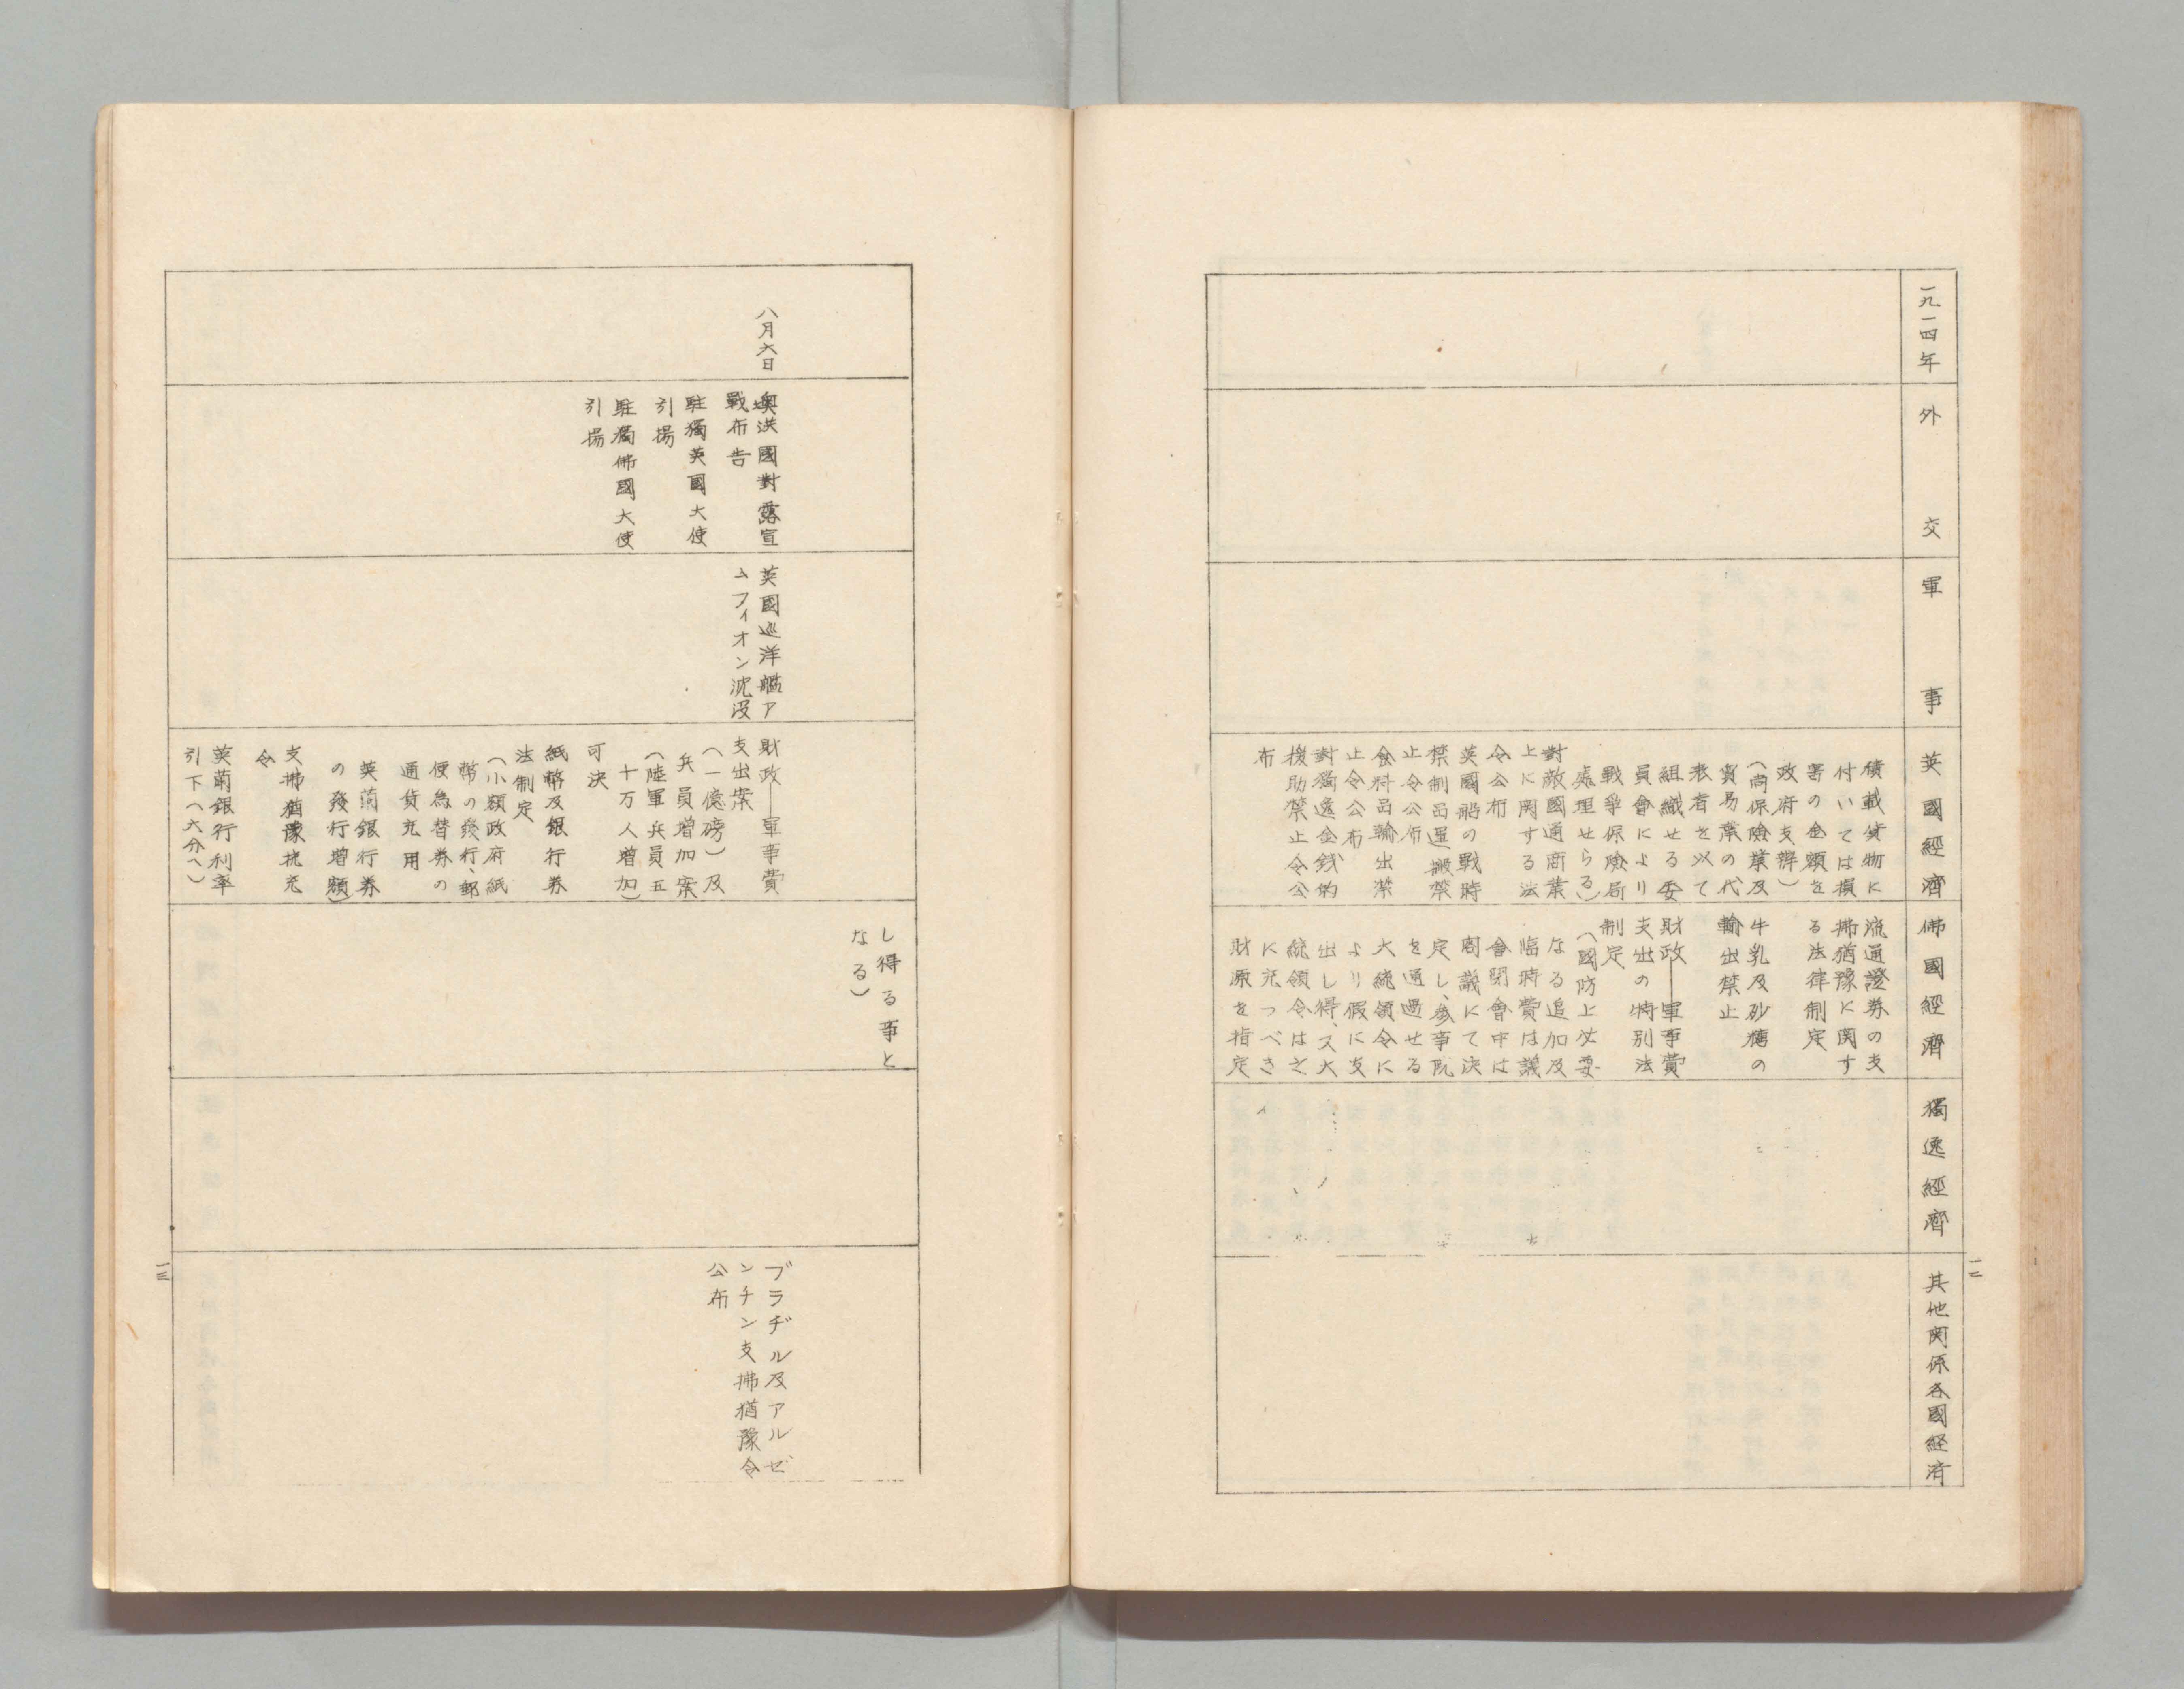 一九一四年
外交
軍事
英國經濟
佛國經濟
獨逸經濟
其他関係各國経済
積載貨物に
付いては損
害の全額を
政府支辨)
(尚保險業及
貿易業の代
表者を以て
組織せる委
員會により
戰爭保險局
處理せらる)
對敵國通商業
上に関する法
令公布
英國船の戰時
禁制品運搬禁
止令公布
食料品輸出禁
止令公布
對獨逸金錢的
援助禁止令公
布
流通證券の支
拂猶豫に関す
る法律制定
牛乳及砂糖の
輸出禁止
財政—軍事費
支出の特別法
制定
(國防上必要
なる追加及
臨時費は議
會閉會中は
閣議にて決
定し、參事院
を通過せる
大統領令に
より假に支
出し得、又大
統領令は之
に充つべき
財源を指定
一二
八月六日
奥洪國對露宣
戰布告
駐獨英國大使
引揚
駐獨佛國大使
引揚
英國巡洋艦ア
ムフィオン沈没
財政—軍事費
支出案
(一億磅)及
兵員増加案
(陸軍兵員五
十万人増加)
可決
紙幣及銀行券
法制定
(小額政府紙
幣の発行、郵
便為替券の
通貨充用
英蘭銀行券
の発行増額)
支拂猶豫拡充
令
英蘭銀行利率
引下(六分へ)
し得る事と
なる)
ブラヂル及アルゼ
ンチン支拂猶豫令
公布
一三